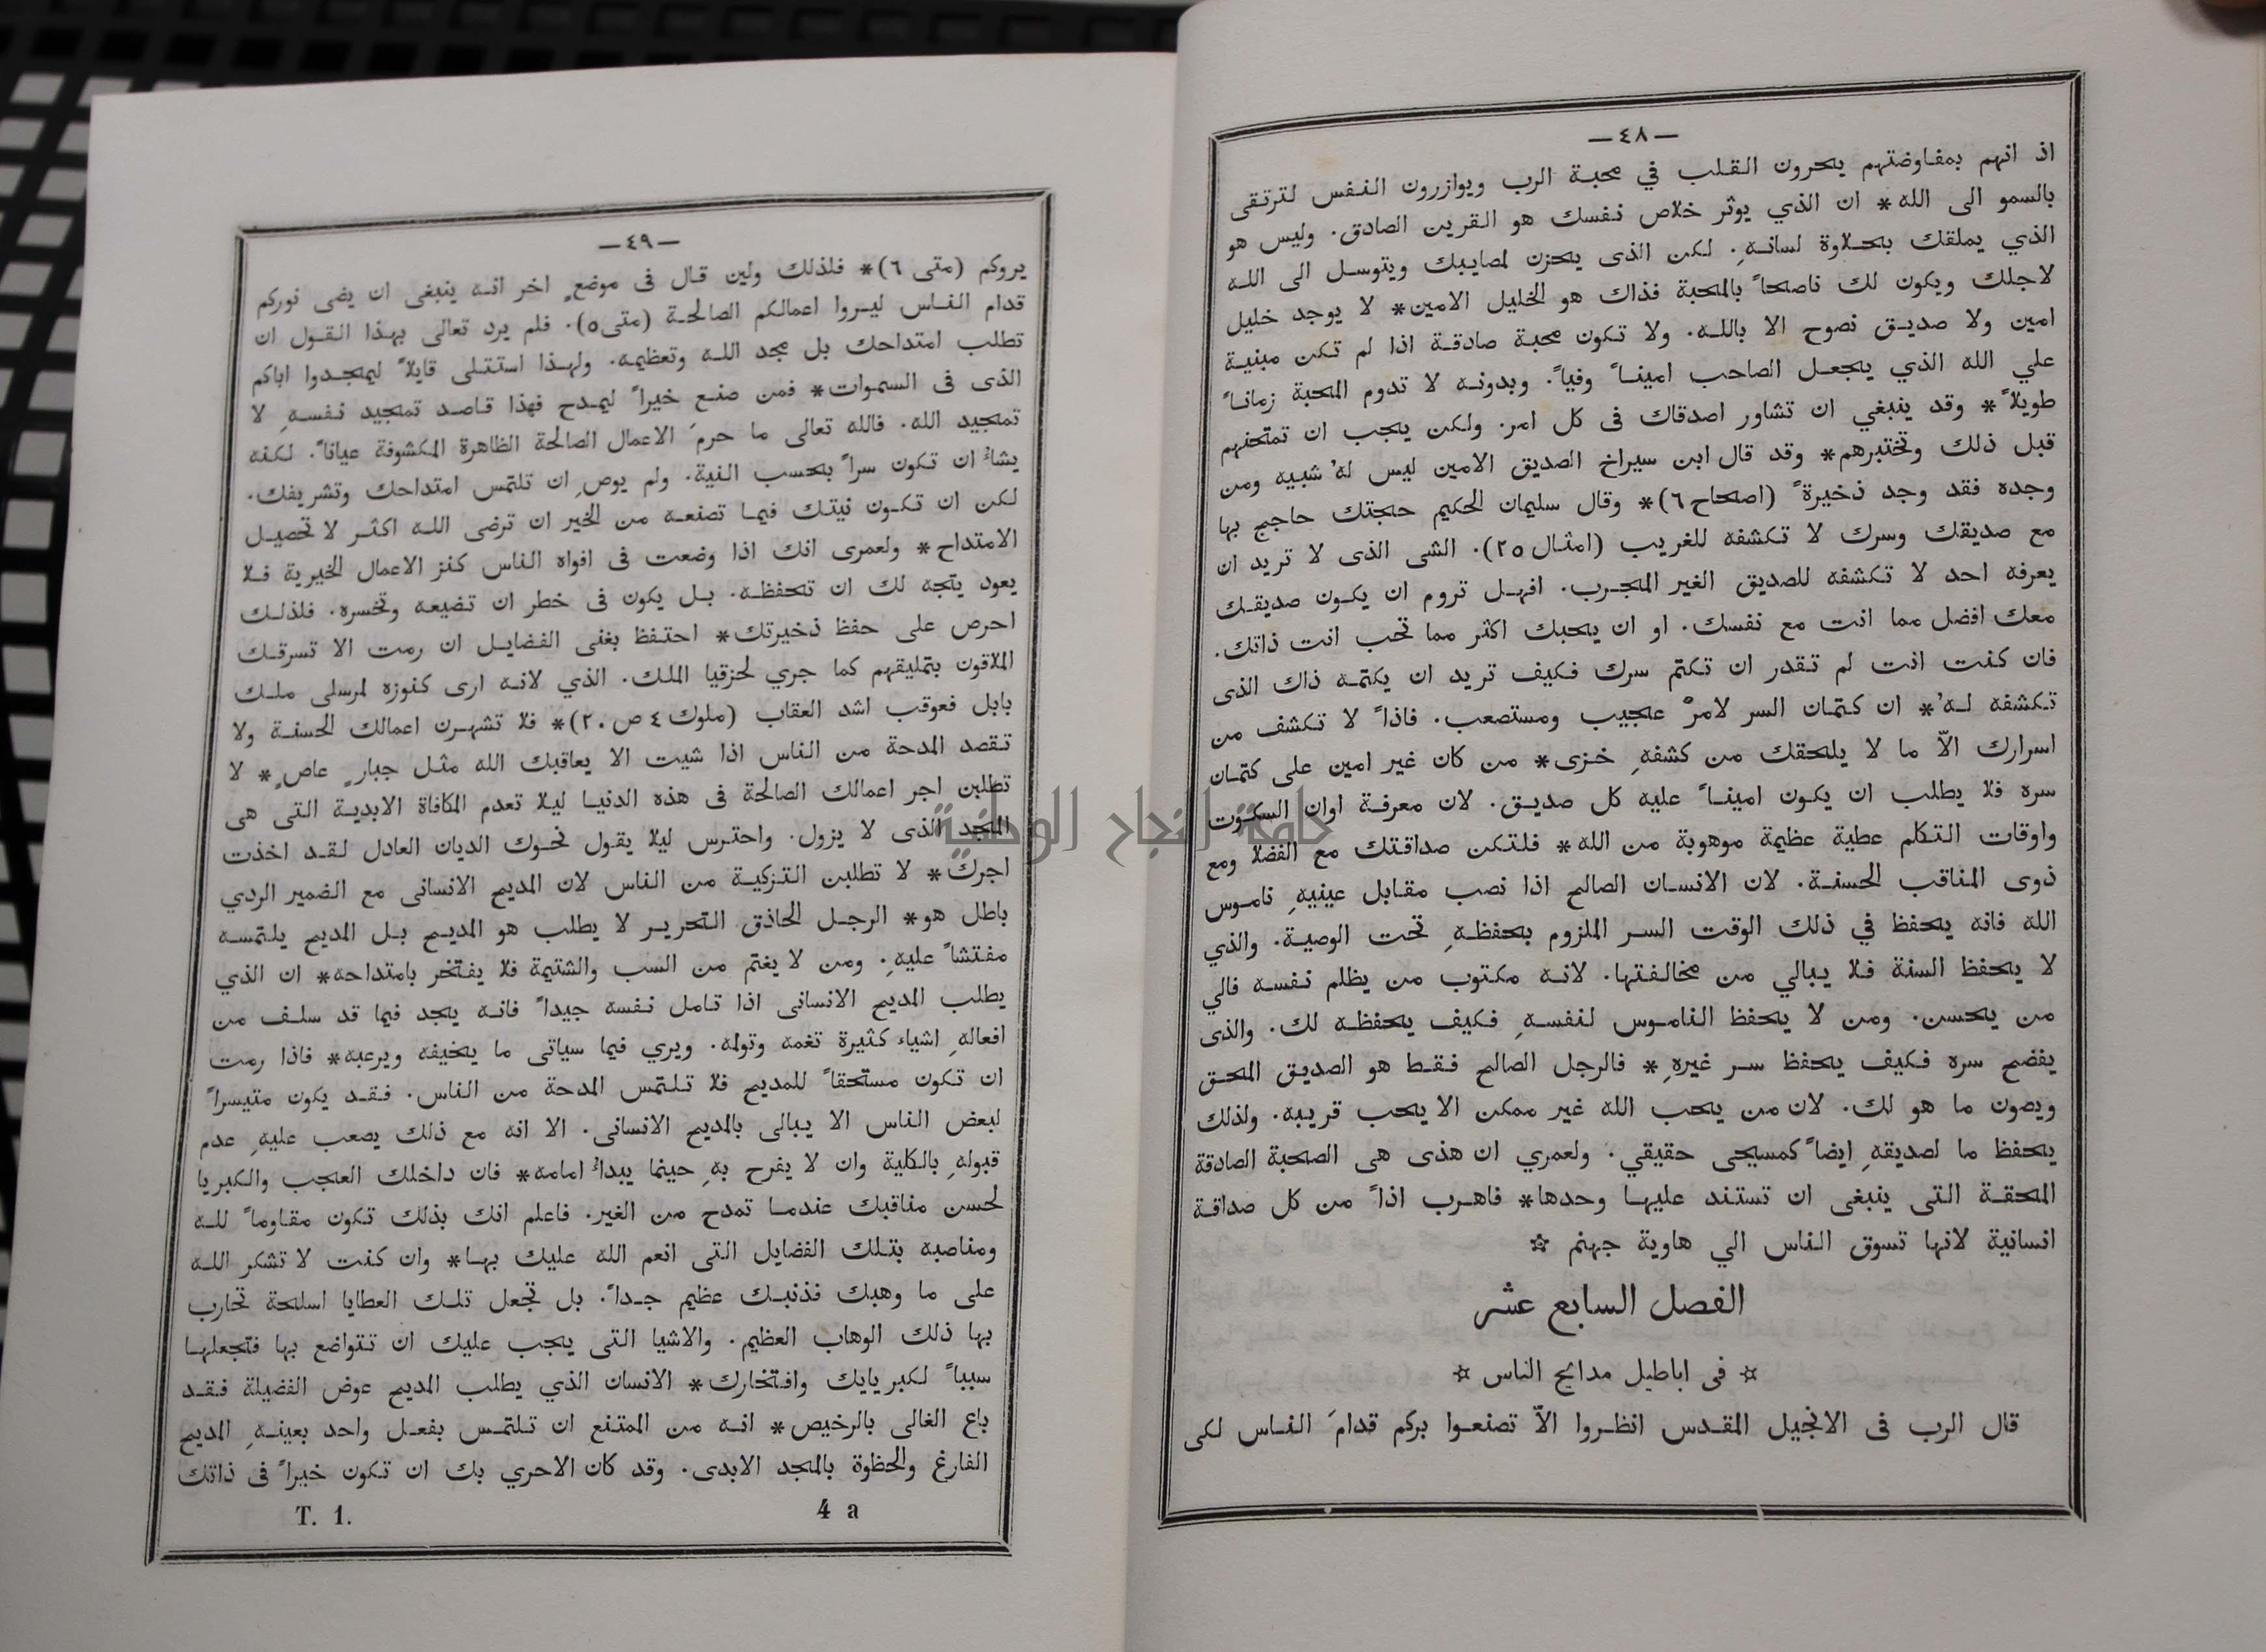 —٤٨—
اذ انهم بمفاوضتهم يحرون القلب في محبة الرب ويوازرون النفس لترتقى
بالسمو الى الله* ان الذي يوثر خلاص نفسك هو القرين الصادق. وليس هو
الذي يملقك بحلاوة لسانهِ. لكن الذى يحزن لمصايبك ويتوسل الى الله
لاجلك ويكون لك ناصحاً بالمحبة فذاك هو الخليل الامين* لا يوجد خليل
امين ولا صديق نصوح الا بالله. ولا تكون محبة صادقة اذا لم تكن مبنية
علي الله الذي يجعل الصاحب اميناً وفياً. وبدونه لا تدوم المحبة زماناً
طويلاً* وقد ينبغي ان تشاور اصدقاك فى كل امر. ولكن يجب ان تمتحنهم
قبل ذلك وتختبرهم* وقد قال ابن سيراخ الصديق الامين ليس لهُ شبيه ومن
وجده فقد وجد ذخيرةً (اصحاح ٦)* وقال سليمان الحكيم حجتك حاجج بها
مع صديقك وسرك لا تكشفه للغريب (امثال ٢٥). الشى الذى لا تريد ان
يعرفه احد لا تكشفه للصديق الغير المجرب. افهل تروم ان يكون صديقك
معك افضل مما انت مع نفسك. او ان يحبك اكثر مما تحب انت ذاتك.
فان كنت انت لم تقدر ان تكتم سرك فكيف تريد ان يكتمه ذاك الذى
تكشفه لهُ* ان كتمان السر لامرٌ عجيب ومستصعب. فاذاً لا تكشف من
اسرارك الاّ ما لا يلحقك من كشفهِ خزى* من كان غير امين على كتمان
سره فلا يطلب ان يكون اميناً عليه كل صديق. لان معرفة اوان السكوت
واوقات التكلم عطية عظيمة موهوبة من الله* فلتكن صداقتك مع الفضلا ومع
ذوى المناقب الحسنة. لان الانسان الصالح اذا نصب مقابل عينيهِ ناموس
الله فانه يحفظ في ذلك الوقت السر الملزوم بحفظهِ تحت الوصية. والذي
لا يحفظ السنة فلا يبالي من مخالفتها. لانه مكتوب من يظلم نفسه فالي
من يحسن. ومن لا يحفظ الناموس لنفسهِ فكيف يحفظه لك. والذى
يفضح سره فكيف يحفظ سر غيرهِ* فالرجل الصالح فقط هو الصديق المحق
ويصون ما هو لك. لان من يحب الله غير ممكن الا يحب قريبه. ولذلك
يحفظ ما لصديقهِ ايضاً كمسيحى حقيقي. ولعمري ان هذى هى الصحبة الصادقة
المحقة التى ينبغى ان تستند عليها وحدها* فاهرب اذاً من كل صداقة
انسانية لانها تسوق الناس الي هاوية جهنم ☆
الفصل السابع عشر
☆ فى اباطيل مدايح الناس ☆
قال الرب فى الانجيل المقدس انظروا الاّ تصنعوا بركم قدامَ الناس لكى
—٤٩—
يروكم (متى ٦)* فلذلك ولين قال فى موضعٍ اخر انه ينبغى ان يضى نوركم
قدام الناس ليروا اعمالكم الصالحة (متى٥). فلم يرد تعالى بهذا القول ان
تطلب امتداحك بل مجد الله وتعظيمه. ولهذا استتلى قايلاً ليمجدوا اباكم
الذى فى السموات* فمن صنع خيراً ليمدح فهذا قاصد تمجيد نفسهِ لا
تمجيد الله. فالله تعالى ما حرمَ الاعمال الصالحة الظاهرة المكشوفة عياناً. لكنه
يشاءُ ان تكون سراً بحسب النية. ولم يوصِ ان تلتمس امتداحك وتشريفك.
لكن ان تكون نيتك فيما تصنعه من الخير ان ترضى الله اكثر لا تحصيل
الامتداح* ولعمرى انك اذا وضعت فى افواه الناس كنز الاعمال الخيرية فلا
يعود يتجه لك ان تحفظه. بل يكون فى خطر ان تضيعه وتخسره. فلذلك
احرص على حفظ ذخيرتك* احتفظ بغنى الفضايل ان رمت الا تسرقك
الملاقون بتمليقهم كما جري لحزقيا الملك. الذي لانه ارى كنوزه لمرسلى ملك
بابل فعوقب اشد العقاب (ملوك ٤ ص ٢٠)* فلا تشهرن اعمالك الحسنة ولا
تقصد المدحة من الناس اذا شيت الا يعاقبك الله مثل جبارٍ عاصٍ* لا
تطلبن اجر اعمالك الصالحة فى هذه الدنيا ليلا تعدم المكافاة الابدية التى هى
المجد الذى لا يزول. واحترس ليلا يقول نحوك الديان العادل لقد اخذت
اجرك* لا تطلبن التزكية من الناس لان المديح الانسانى مع الضمير الردي
باطل هو* الرجل الحاذق النحرير لا يطلب هو المديح بل المديح يلتمسه
مفتشاً عليهِ. ومن لا يغتم من السب والشتيمة فلا يفتخر بامتداحه* ان الذي
يطلب المديح الانسانى اذا تامل نفسه جيداً فانه يجد فيما قد سلف من
افعالهِ اشياء كثيرة تغمه وتولمه. ويري فيما سياتى ما يخيفه ويرعبه* فاذا رمت
ان تكون مستحقاً للمديح فلا تلتمس المدحة من الناس. فقد يكون متيسراً
لبعض الناس الا يبالى بالمديح الانسانى. الا انه مع ذلك يصعب عليهِ عدم
قبولهِ بالكلية وان لا يفرح بهِ حينما يبداءُ امامه* فان داخلك العجب والكبريا
لحسن مناقبك عندما تمدح من الغير. فاعلم انك بذلك تكون مقاوماً لله
ومناصبه بتلك الفضايل التى انعم الله عليك بها* وان كنت لا تشكر الله
على ما وهبك فذنبك عظيم جداً. بل تجعل تلك العطايا اسلحة تحارب
بها ذلك الوهاب العظيم. والاشيا التى يجب عليك ان تتواضع بها فتجعلها
سبباً لكبريايك وافتخارك* الانسان الذي يطلب المديح عوض الفضيلة فقد
باع الغالى بالرخيص* انه من الممتنع ان تلتمس بفعل واحد بعينهِ المديح
الفارغ والحظوة بالمجد الابدى. وقد كان الاحري بك ان تكون خيراً فى ذاتك
T. 1. 4 a
جامعة النجاح الوطنية